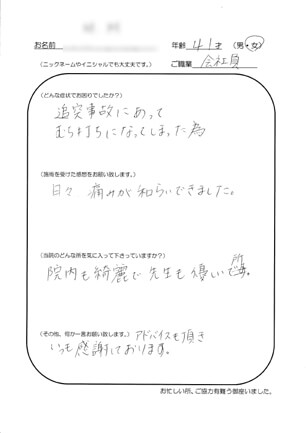 お名前
年齢 41才 (男・女)
(ニックネームやイニシャルでも大丈夫です。)
ご職業 会社員
(どんな症状でお困りでしたか？)
追突事故にあって
むち打ちになってしまった為
(施術を受けた感想をお願い致します。)
日々 痛みが和らいできました。
(当院のどんな所を気に入って下さっていますか？)
院内も綺麗で先生も優しい所。
(その他、何か一言お願い致します。) アドバイスも頂き
いつも感謝しております。
お忙しい所、ご協力有難う御座いました。